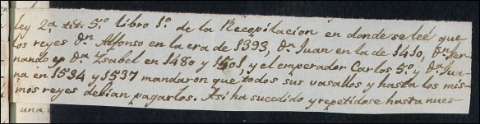 ley 2ª. tit. 5º. libro 1º. de la Recopilacion en donde se lee que
los reyes Dn. Alfonso en la era de 1393, Dn. Juan en la de 1410, Dn. Fer-
nando y Dª. Isabel en 1480 y 1501 y el emperador Carlos 5º. y Dª. Jua-
na en 1534 y 1537 mandaron que todos sus vasallos y hasta los mis-
mos reyes debian pagarlos. Asi ha sucedido y repetidose hasta nues-
una